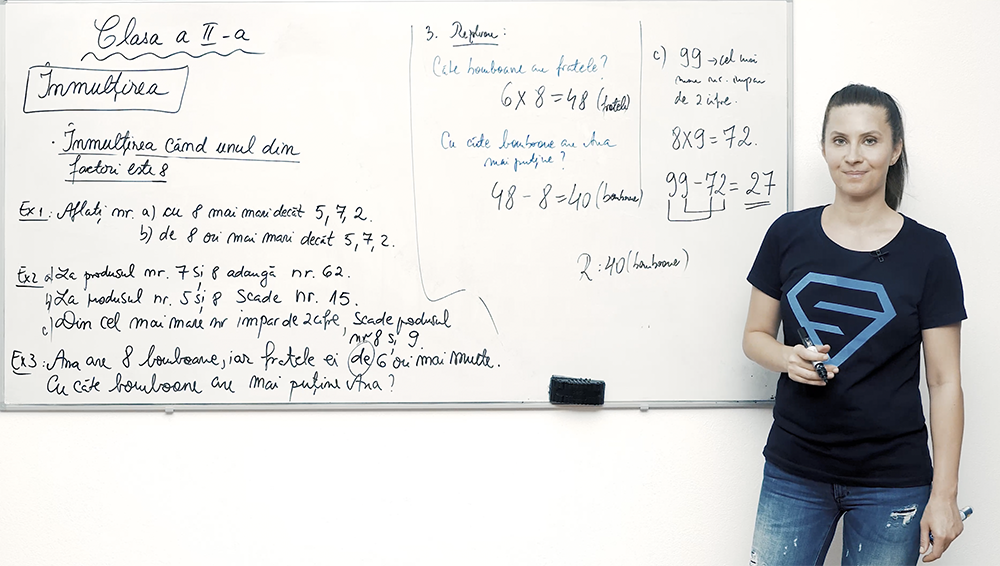 Clasa a II-a
Înmulțirea
· Înmulțirea când unul din
factori este 8
Ex1: Aflați nr. a) cu 8 mai mari decât 5, 7, 2.
b) de 8 ori mai mari decât 5, 7, 2.
Ex2 a) La produsul nr. 7 și 8 adaugă nr. 62.
b) La produsul nr. 5 și 8 scade nr. 15.
c) Din cel mai mare nr impar de 2 cifre, scade produsul
nr 8 și 9.
Ex3: Ana are 8 bomboane, iar fratele ei de 6 ori mai multe.
Cu câte bomboane are mai puține Ana?
3. Rezolvare:
Câte bomboane are fratele?
6 x 8 = 48 (fratele)
Cu câte bomboane are Ana
mai puține?
48 - 8 = 40 (bomboane)
R: 40 (bomboane)
c) 99 → cel mai
mare nr. impar
de 2 cifre.
8x9 = 72.
99 - 72 = 27